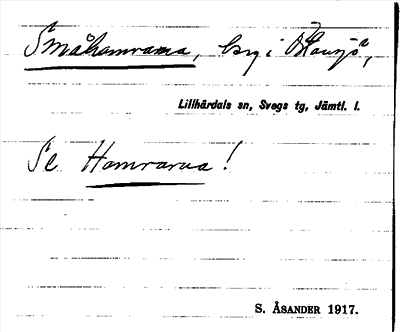 Småhamrarna, berg i Öhansjö,
Lillhärdals sn, Svegs tg, Jämtl. l.
Se Hamrarna!
S. ÅSANDER 1917.